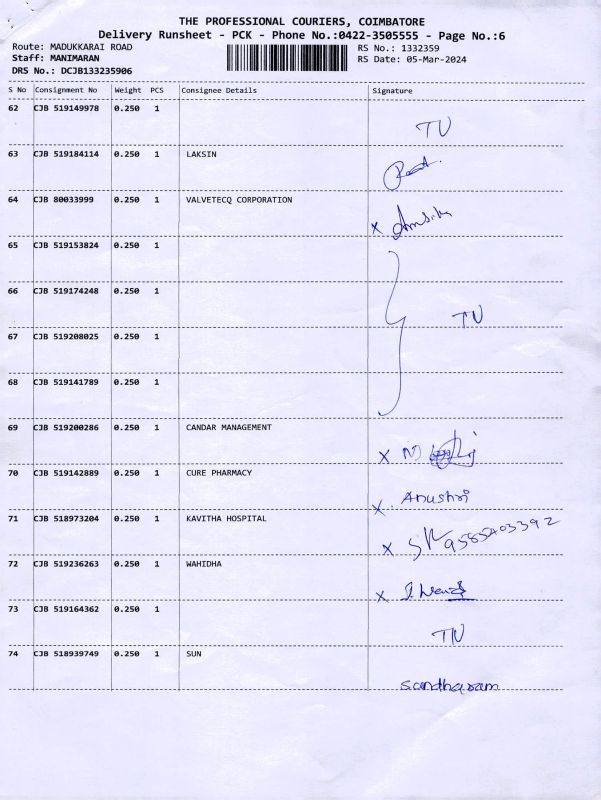 THE PROFESSIONAL COURIERS, COIMBATORE
Delivery Runsheet - PCK - Phone No.:0422-3505555 - Page No.:6
Route: MADUKKARAI ROAD RS No.: 1332359
Staff: MANIMARAN RS Date: 05-Mar-2024
DRS No.: DCJB133235906
S No Consignment No Weight PCS Consignee Details Signature
62 CJB 519149978 0.250 1
TU
63 CJB 519184114 0.250 1 LAKSIN
64 CJB 80033999 0.250 1 VALVETECQ CORPORATION
X
65 CJB 519153824 0.250 1
66 CJB 519174248 0.250 1
TU
67 CJB 519208025 0.250 1
68 CJB 519141789 0.250 1
69 CJB 519200286 0.250 1 CANDAR MANAGEMENT
X
70 CJB 519142889 0.250 1 CURE PHARMACY
X Anushri
71 CJB 518973204 0.250 1 KAVITHA HOSPITAL
X 9585403392
72 CJB 519236263 0.250 1 WAHIDHA
X
73 CJB 519164362 0.250 1
TU
74 CJB 518939749 0.250 1 SUN
sandharam